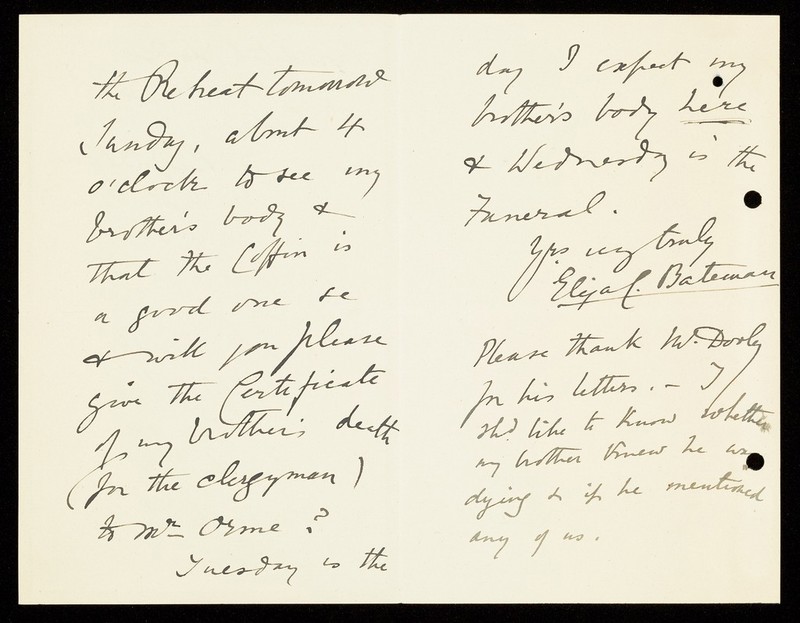 the Retreat tomorrow
Sunday, about 4
o'clock to see my
brother's body &
that the Coffin is
a good one &c
& will you please
give the Certificate
of my brother's death
(for the clergyman)
to Mr Orme?
Tuesday is the
day I expect my
brother's body here
& Wednesday is the
Funeral.
Yrs very truly
Eliza C. Bateman
Please thank Mr. Dooly
for his letters. - I
shd like to know whether
my brother knew he was
dying & if he mentioned
any of us.